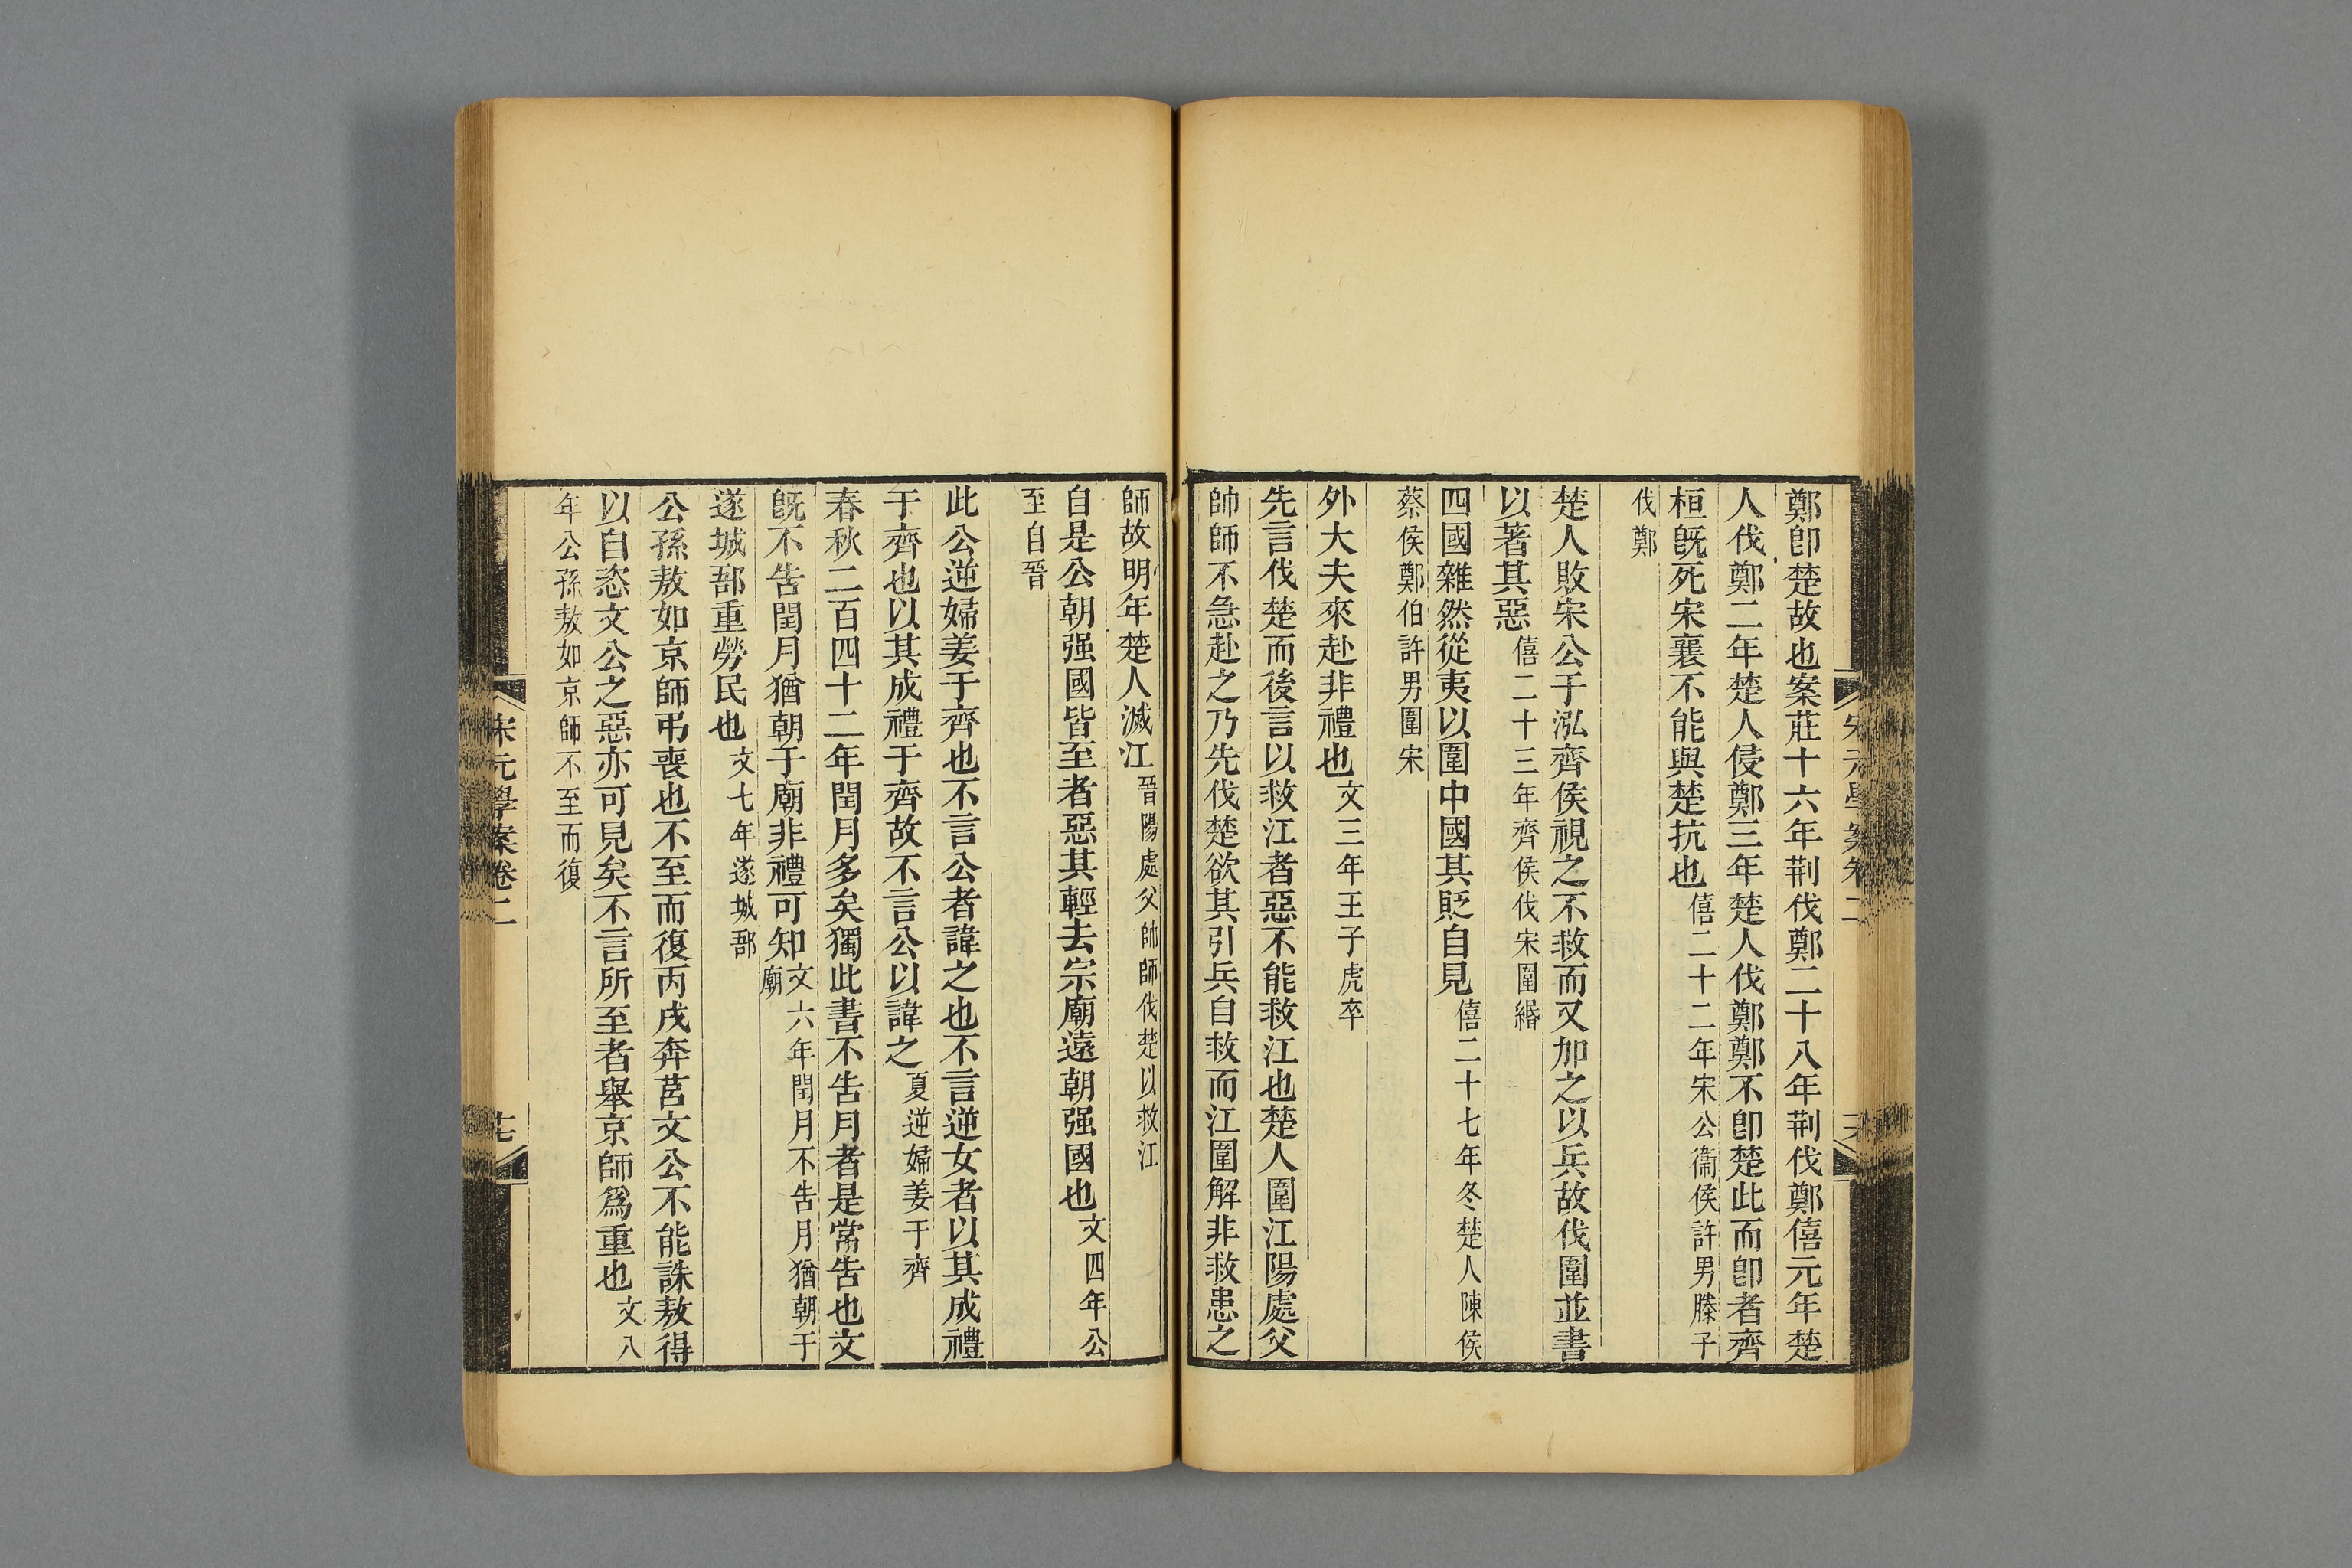 鄭卽楚故也案莊十六年荆伐鄭二十八年荆伐鄭僖元年楚
人伐鄭二年楚人侵鄭三年楚人伐鄭鄭不卽楚此而卽者齊
桓旣死宋襄不能與楚抗也僖二十二年宋公衞侯許男滕子
伐鄭
楚人敗宋公于泓齊侯視之不救而又加之以兵故伐圍並書
以著其惡僖二十三年齊侯伐宋圍緡
四國雜然從夷以圍中國其貶自見僖二十七年冬楚人陳侯
蔡侯鄭伯許男圍宋
外大夫來赴非禮也文三年王子虎卒
先言伐楚而後言以救江者惡不能救江也楚人圍江陽處父
帥師不急赴之乃先伐楚欲其引兵自救而江圍解非救患之
師故明年楚人滅江晉陽處父帥師伐楚以救江
自是公朝强國皆至者惡其輕去宗廟遠朝强國也文四年公
至自晉
此公逆婦姜于齊也不言公者諱之也不言逆女者以其成禮
于齊也以其成禮于齊故不言公以諱之夏逆婦姜于齊
春秋二百四十二年閏月多矣獨此書不告月者是常告也文
旣不告閏月猶朝于廟非禮可知文六年閏月不告月猶朝于
廟
遂城郚重勞民也文七年遂城郚
公孫敖如京師弔喪也不至而復丙戌奔莒文公不能誅敖得
以自恣文公之惡亦可見矣不言所至者舉京師爲重也文八
年公孫敖如京師不至而復
宋元學案卷二
十七